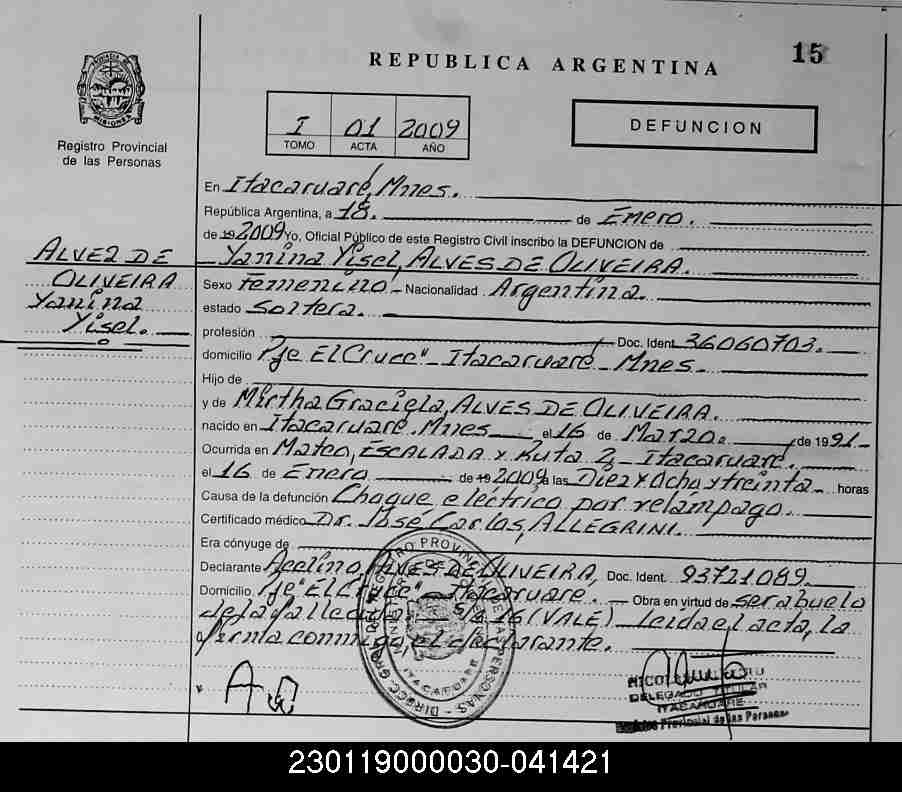 15
REPUBLICA ARGENTINA
PROVINCIA DE
MISIONES
Registro Provincial
de las Personas
I 01 2009
TOMO ACTA AÑO
DEFUNCION
En Itacaruaré, Mnes.
República Argentina, a 18. de Enero.
de 19 2009 Yo, Oficial Público de este Registro Civil inscribo la DEFUNCION de
ALVEZ DE
OLIVEIRA
Yanina
Yisel.
Yanina Yisel, ALVES DE OLIVEIRA.
Sexo Femenino - Nacionalidad Argentina.
estado Soltera.
profesión Doc. Ident. 36060703.
domicilio Pje "El Cruce" - Itacaruaré - Mnes.
Hijo de
y de Mirtha Graciela, ALVES DE OLIVEIRA.
nacido en Itacaruaré. Mnes el 16 de Marzo. de 1991-
Ocurrida en Mateo, ESCALADA y Ruta 2, - Itacaruaré.
el 16 de Enero de 19 2009, a las Diez y Ocho y treinta - horas
Causa de la defunción Choque eléctrico por relámpago.
Certificado médico Dr. José Carlos, ALLEGRINI.
Era cónyuge de
Declarante ALVES DE OLIVEIRA, Doc. Ident. 93721089.
Domicilio Pje "El Cruce" - Itacaruare. - Obra en virtud de ser abuelo
de la fallecida 16 (VALE) - Leida el acta, la
firma conmigo, el declarante.
REGISTRO PROVINCIAL DE LAS PERSONAS - DIRECC. GRAL.
ITACARUARE
DELEGADO TITULAR
ITACARUARE
Registro Provincial de las Personas
230119000030-041421